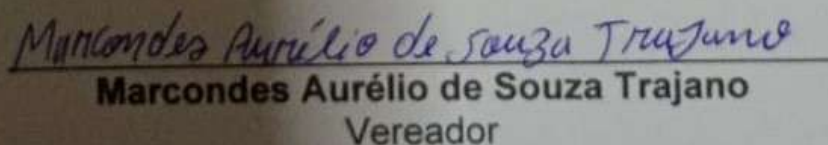 Marcondes Aurélio de Souza Trajano
Marcondes Aurélio de Souza Trajano
Vereador